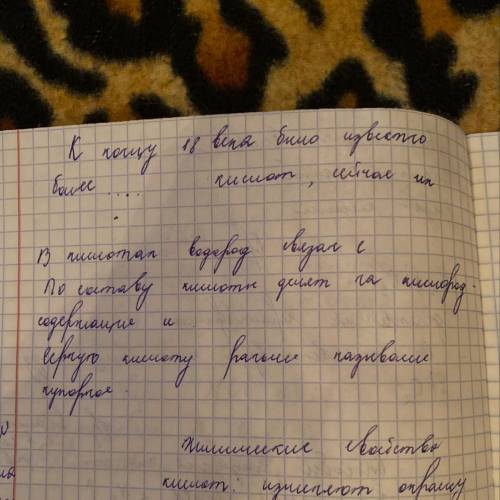 К концу 18 века было известно
более .... кислот, сейчас их
.
В кислотах водород связан с
По составу кислоты делят на кислород-
содержащие и
Серную кислоту раньше называли
купорное.
Химические свойства
кислот: изменяют окраску